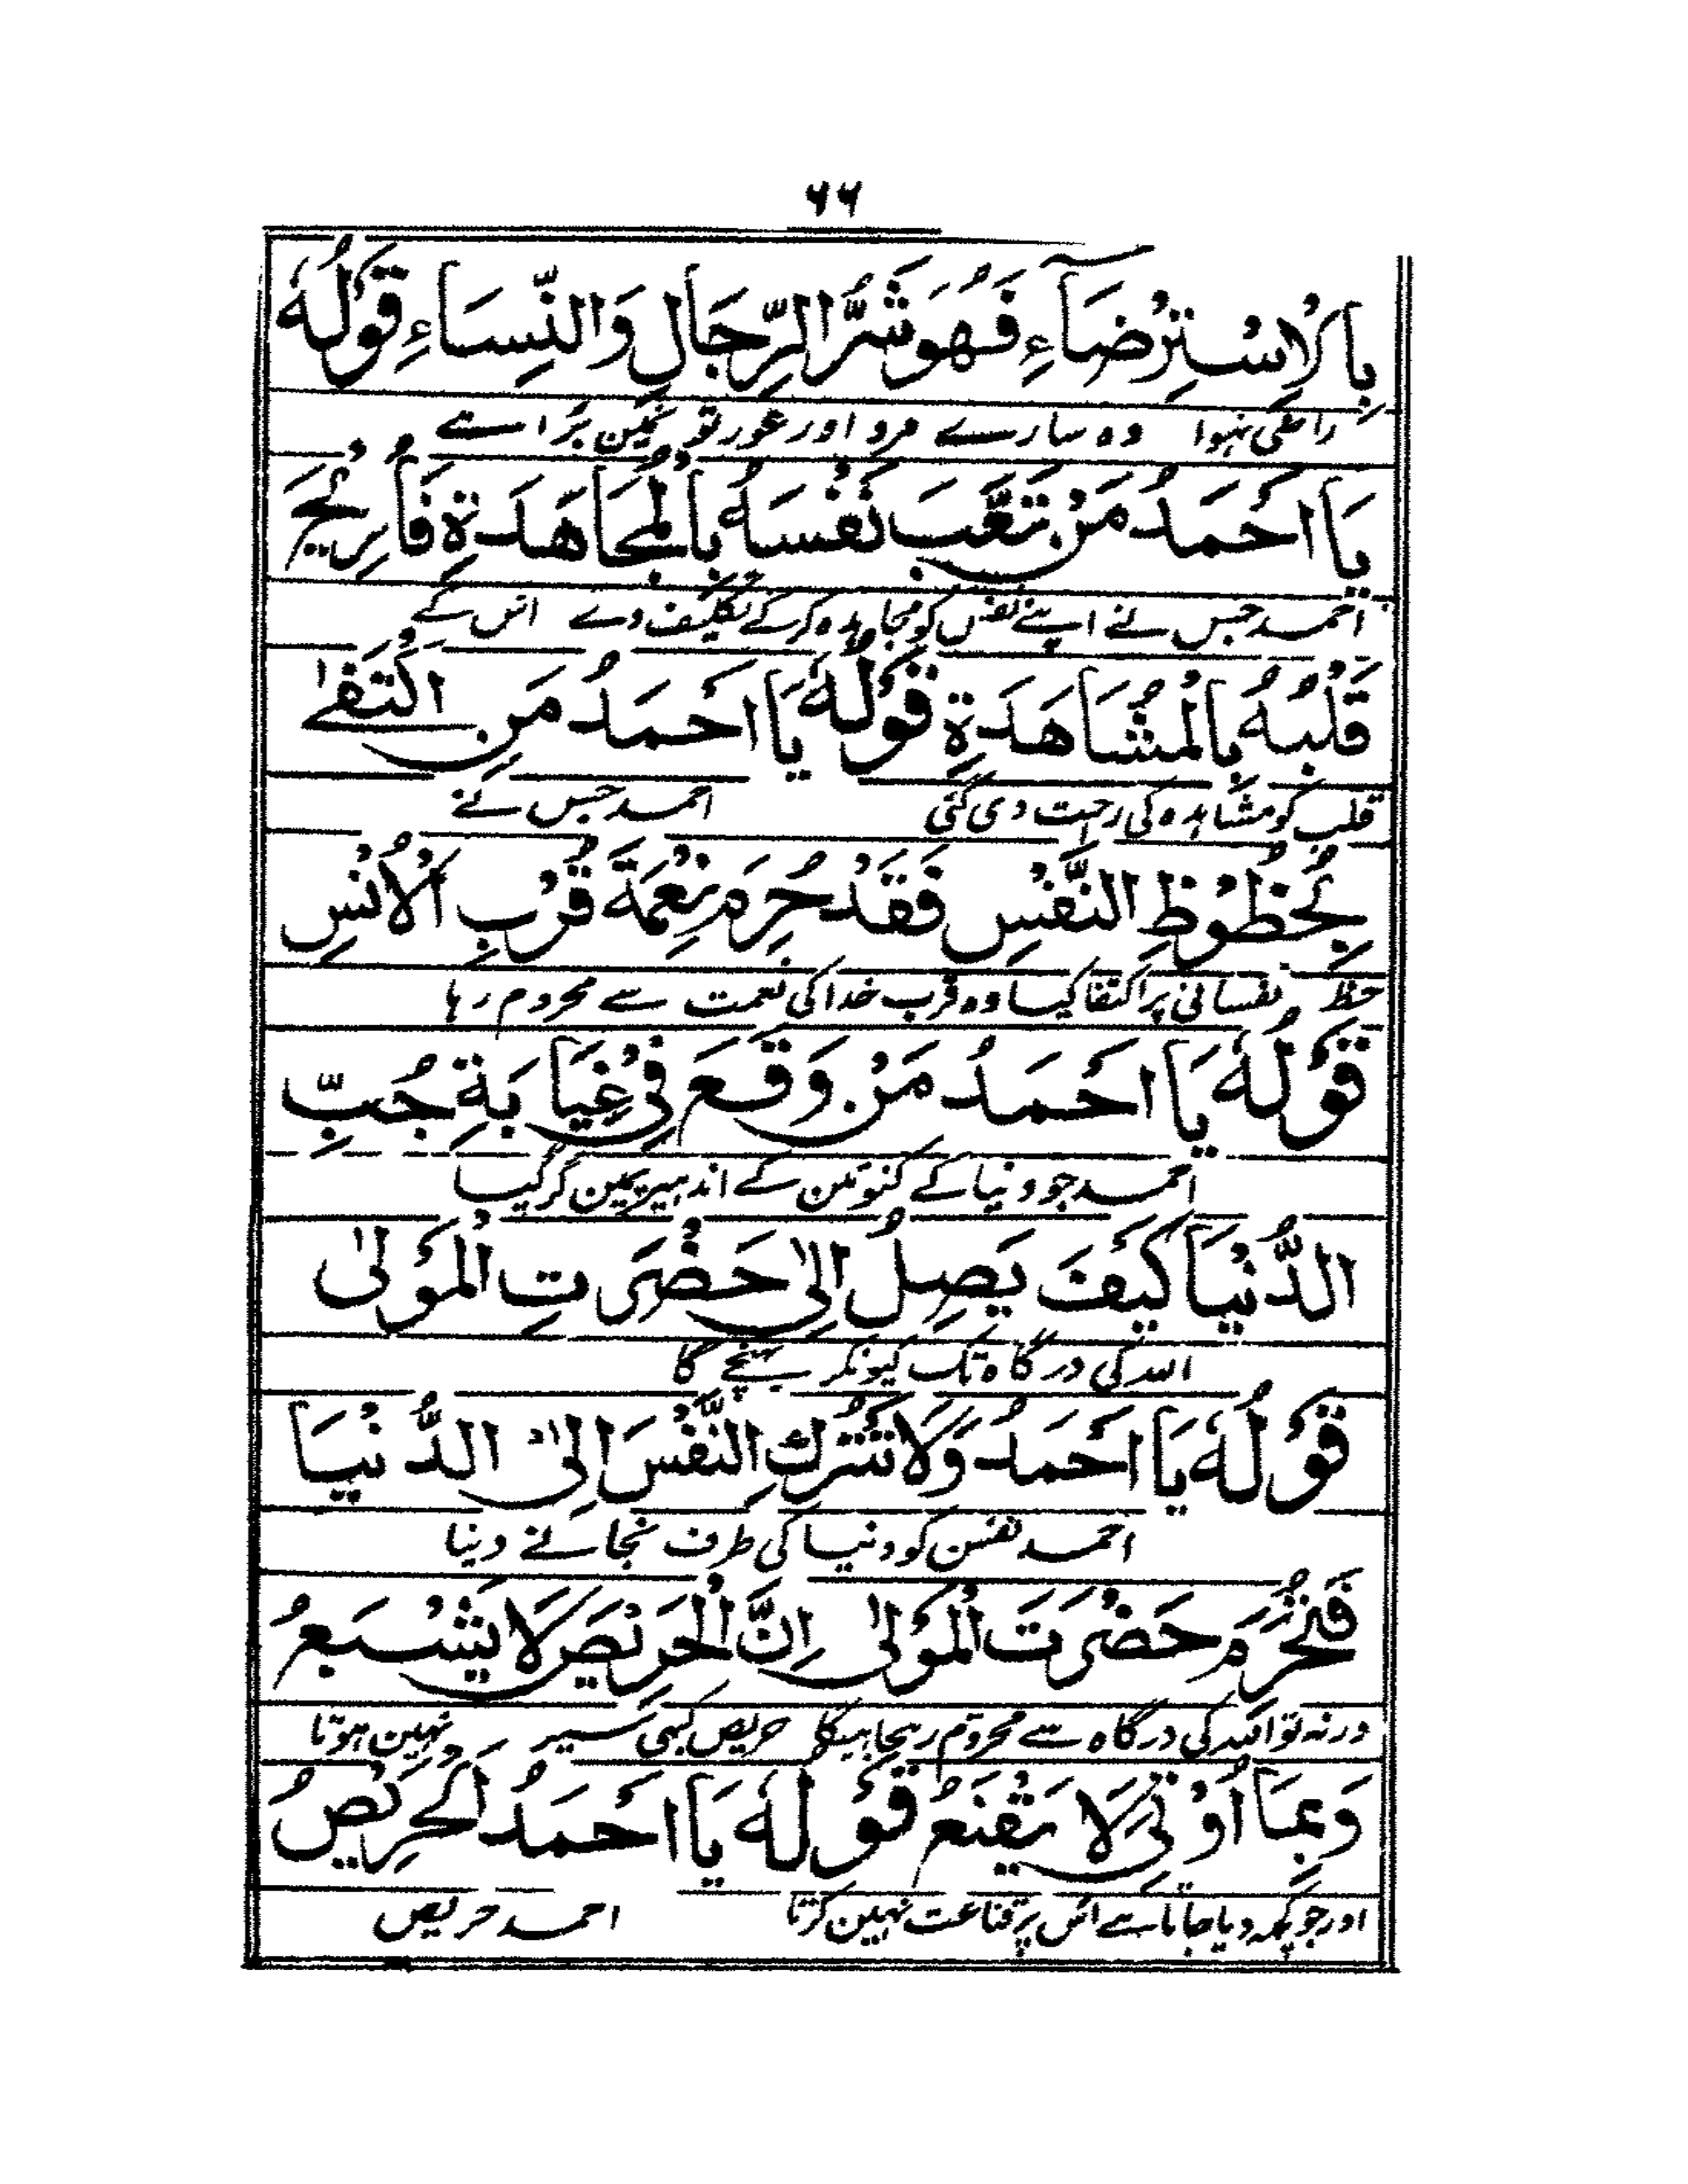 ۶۶
بِالْاِسْتِرْضَآءِ فَهُوَ شَرُّ الرِّجَالِ وَالنِّسَاءِ قَوْلُهٗ
راضی نہوا وہ سارے مرد اور عورتونمین بُرا ہے
يَا اَحْمَدُ مَنْ تَعَّبَ نَفْسَهُ بِالْمُجَاهَدَةِ فَاُرِيْحَ
احمد جس نے اپنے نفس کو مجاہدہ کرکے تکلیف دے اس کے
قَلْبُهُ بِالْمُشَاهَدَةِ قَوْلُهٗ يَا اَحْمَدُ مَنِ اكْتَفٰے
قلب کو مشاہدہ کی راحت دی گئی احمد جس نے
بِحُظُوْظِ النَّفْسِ فَقَدْ حُرِمَ نِعْمَةَ قُرْبِ الْاُنْسِ
حظ نفسانی پر اکتفا کیا وہ قرب خدا کی نعمت سے محروم رہا
قَوْلُهٗ يَا اَحْمَدُ مَنْ وَقَعَ فِيْ غِيَابَةِ جُبِّ
احمد جو دنیا کے کنوئین کے اندہیریمین گر گیا
الدُّنْيَا كَيْفَ يَصِلُ اِلىٰ حَضْرَتِ الْمَوْلىٰ
اللہ کی درگاہ تک کیونکر پہنچے گا
قَوْلُهٗ يَا اَحْمَدُ وَلَا تَتْرُكِ النَّفْسَ اِلىٰ الدُّنْيَا
احمد نفس کو دنیا کی طرف نجانے دینا
فَتُحْرَمَ حَضْرَتَ الْمَوْلىٰ اِنَّ الْحَرِيْصَ لَا يَشْبَعُ
ورنہ تو اللہ کی درگاہ سے محروم رہجاییگا حریص کبہی سیر نہین ہوتا
وَبِمَا اُوْتِيَ لَا يَقْنَعُ قَوْلُهٗ يَا اَحْمَدُ الْحَرِيْصُ
اور جو کچہ دیا جاتا ہے اُس پر قناعت نہین کرتا احمد حریص